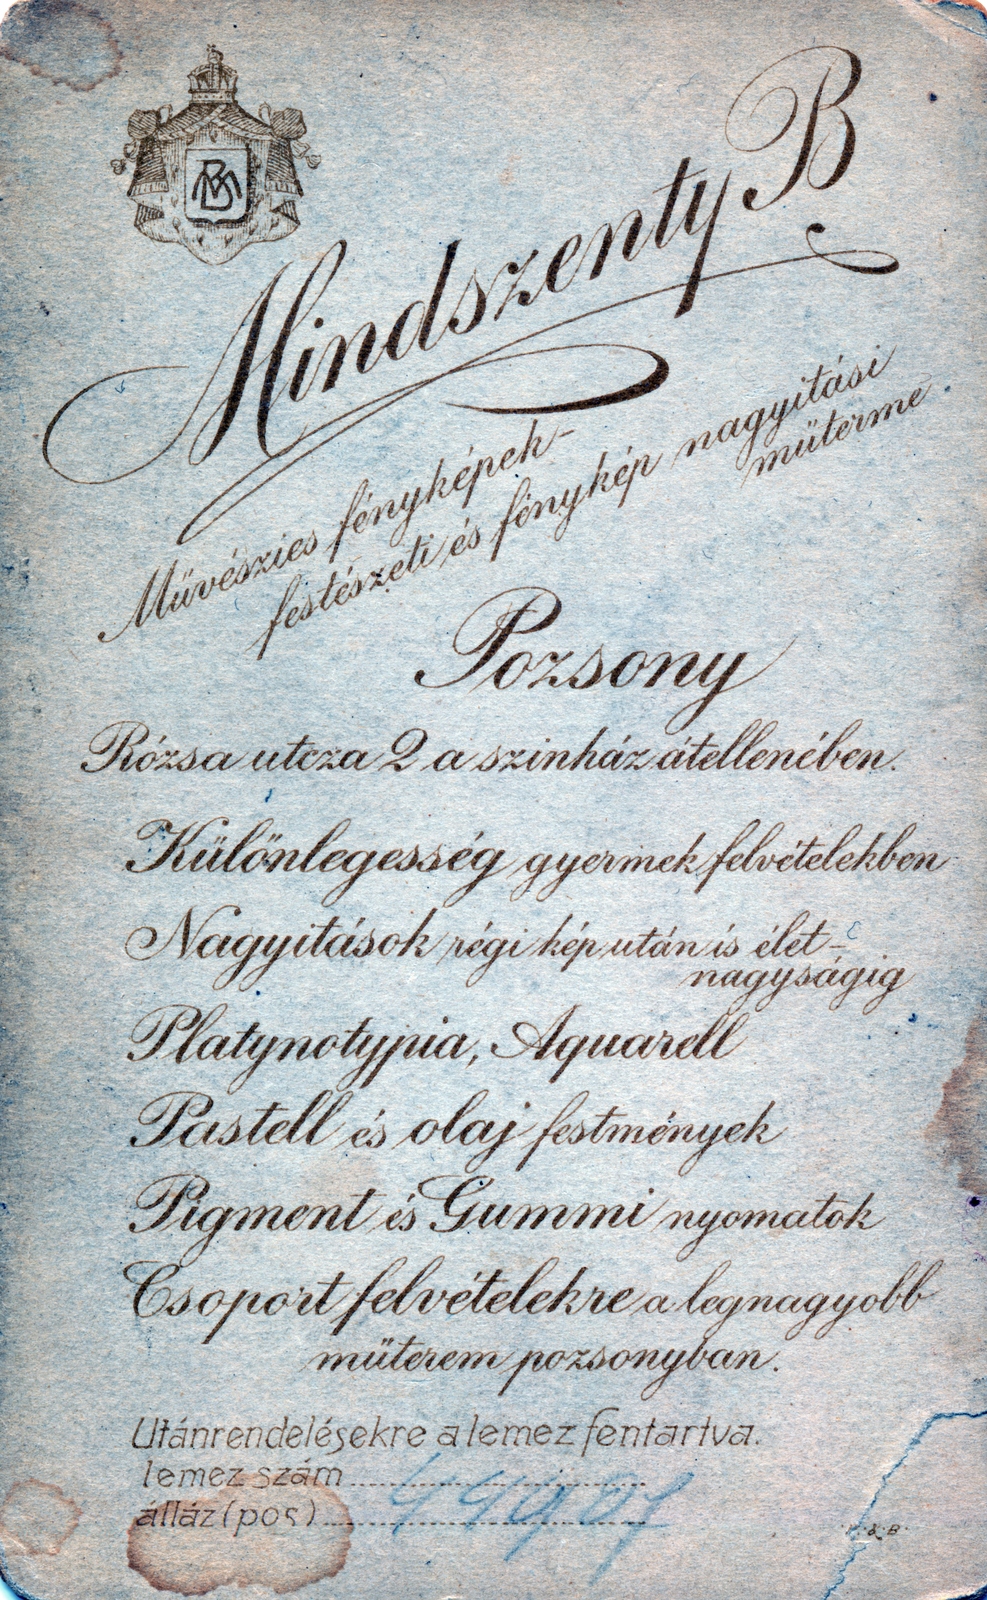 BM
Mindszenty B
Művészies fényképek-
festészeti és fénykép nagyitási
műterme
Pozsony
Rózsa utcza 2 a szinház átellenében.
Különlegesség gyermek felvételekben
Nagyitások régi kép után is élet-
nagyságig
Platynotypia, Aquarell
Pastell és olaj festmények
Pigment és Gummi nyomatok
Csoport felvételekre a legnagyobb
műterem pozsonyban.
Utánrendelésekre a lemez fentartva.
lemez szám
álláz (pos)